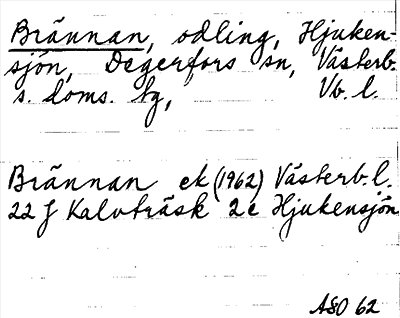 Brännan, odling, Hjuken-
sjön, Degerfors sn, Västerb.
s. doms. tg, Vb. l.
Brännan ek (1962) Västerb. l.
22 J Kalvträsk 2c Hjukensjön
ASO 62